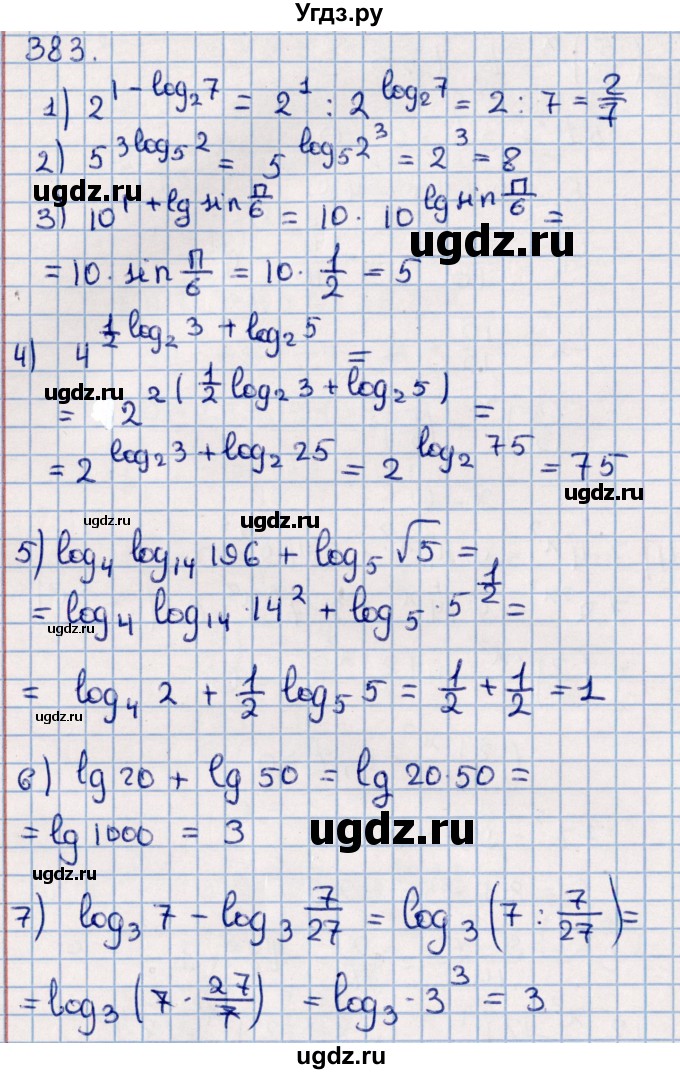 Угдз.ру
383.
1) 2^{1 - log₂7} = 2¹ : 2^{log₂7} = 2 : 7 = 2/7
2) 5^{3log₅2} = 5^{log₅2³} = 2³ = 8
ugdz.ru
3) 10^{1 + lg sin П/6} = 10 · 10^{lg sin П/6} =
ugdz.ru
= 10 · sin П/6 = 10 · 1/2 = 5
4) 4^{1/2 log₂3 + log₂5} =
ugdz.ru
= 2^{2(1/2 log₂3 + log₂5)} =
= 2^{log₂3 + log₂25} = 2^{log₂75} = 75
ugdz.ru
ugdz.ru
ugdz.ru
5) log₄ log₁₄ 196 + log₅ √5 =
= log₄ log₁₄ · 14² + log₅ · 5^{1/2} =
ugdz.ru
= log₄ 2 + 1/2 log₅ 5 = 1/2 + 1/2 = 1
ugdz.ru
6) lg 20 + lg 50 = lg 20·50 =
= lg 1000 = 3
ugdz.ru
ugdz.ru
7) log₃ 7 - log₃ 7/27 = log₃ (7 : 7/27) =
= log₃ (7 · 27/7) = log₃ · 3³ = 3
ugdz.ru